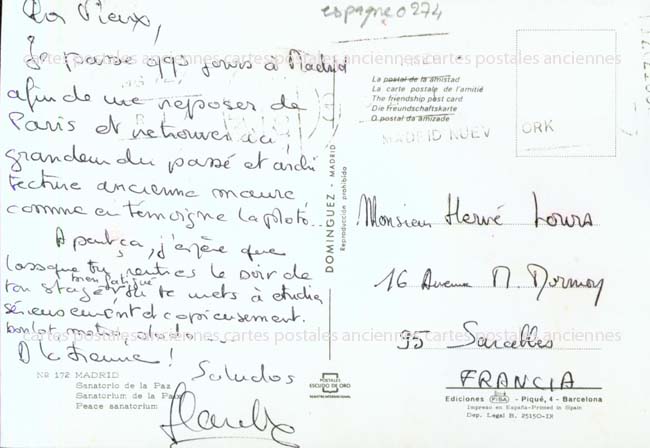 espagne0274
Mon Vieux,
Je passe qqs jours à Madrid
afin de me reposer de
Paris et retrouver ici
grandeur du passé et archi
tecture ancienne
comme en témoigne la photo...
A part ça, j'espère que
lorsque tu rentres le soir de
ton stage, bien fatigué, tu te mets à étudier
sérieusement et copieusement.
A la tienne!
Saludos
Nº 172 MADRID
Sanatorio de la Paz
Sanatorium de la Paix
Peace sanatorium
DOMINGUEZ - MADRID
Reproducción prohibida
POSTALES
ESCUDO DE ORO
REGISTRO INTERNACIONAL
La postal de la amistad
La carte postale de l'amitié
The friendship post card
Die freundschaftskarte
O postal da amizade
MADRID NUEV
ORK
Monsieur Hervé
16 Avenue M. Dormoy
95 Sarcelles
FRANCIA
Ediciones FISA - Piqué, 4 - Barcelona
Impreso en España-Printed in Spain
Dep. Legal B. 25150-IX
cartes postales anciennes cartes postales anciennes cartes postales anciennes
cartes postales anciennes cartes postales anciennes cartes postales anciennes